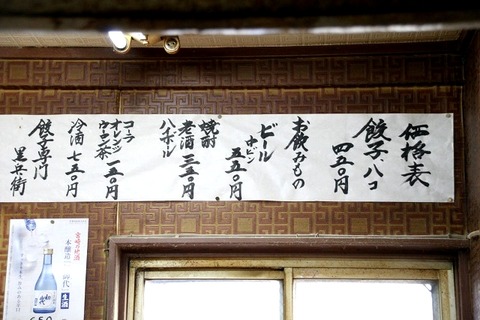 価格表
餃子 八コ
四五〇円
お飲みもの
ビール
中ビン
五五〇円
焼酎
老酒 三五〇円
ハイボール
コーラ
オレンジ 一五〇円
ウーロン茶
冷酒 七五〇円
餃子専門
黒兵衛
宮崎の地酒
本醸造
生酒